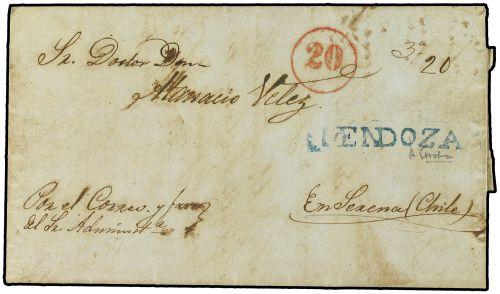 Sr. Doctor Don
20
3ª
20
Atanacio Velez
MENDOZA
Por el Correo y
del Sr. Administ
En Serena (Chile)